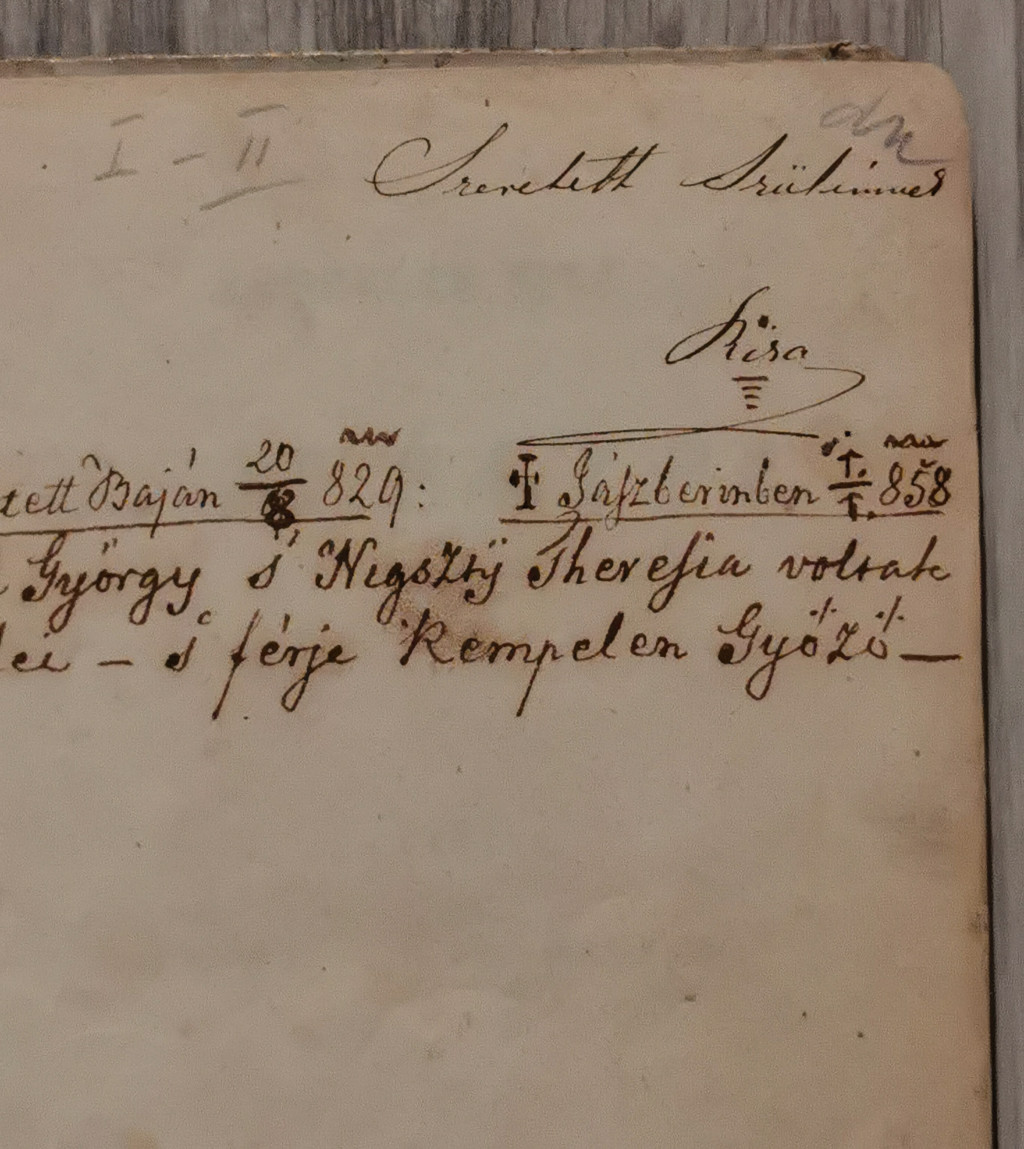 I - II
Szeretett Szüleimnek
Kiss
tett Baján 20/8 829: ✝ Jászberinben 1/1. 858
György s' Nigszty Theresia voltak
lei – s' férje Kempelen Győző –